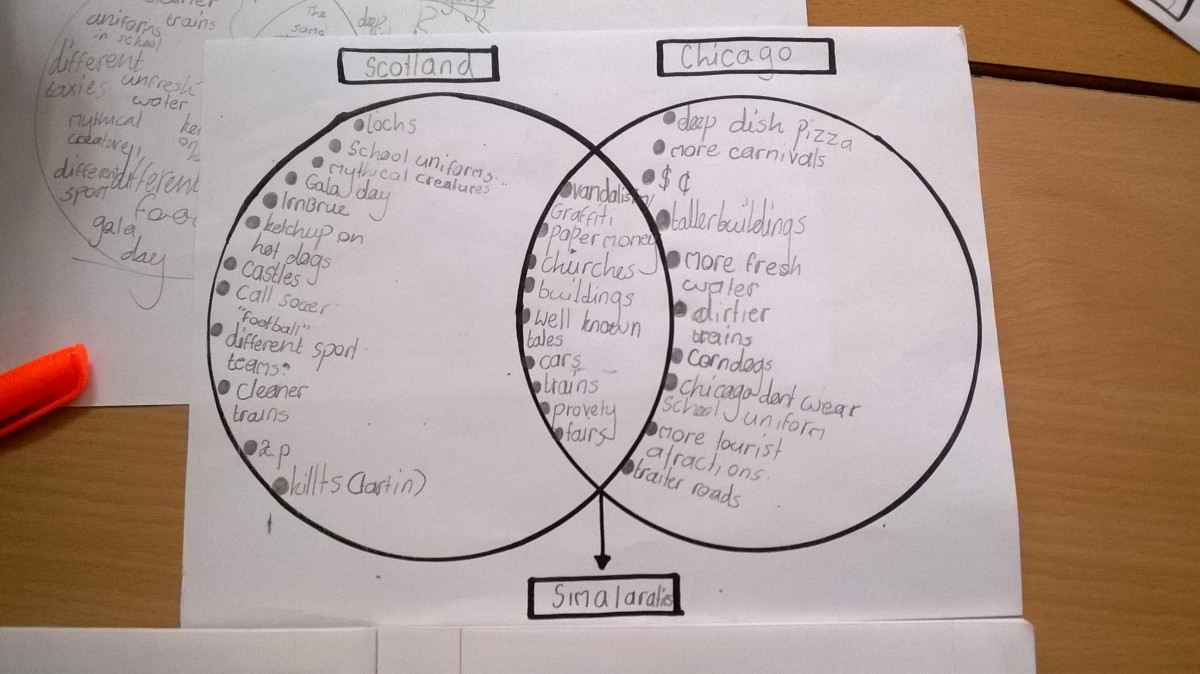 uniforms trains
in school
different
taxies unfresh
water
mythical
creatures,
different different
sport
gala
day
The
same
Scotland
lochs
School uniforms
mythical creatures
Gala day
IrnBrue
ketchup on
hot dogs
Castles
Call soccer
"football"
different sport
teams
Cleaner
trains
£ p
killts (tartin)
vandalism/
Graffiti
paper money
churches
buildings
Well known
tales
cars
trains
provety
fairs
Chicago
deep dish pizza
more carnivals
$ ¢
taller buildings
more fresh
water
dirtier
trains
Corndogs
Chicago dont wear
school uniform
more tourist
atractions.
roads
Simalaraties